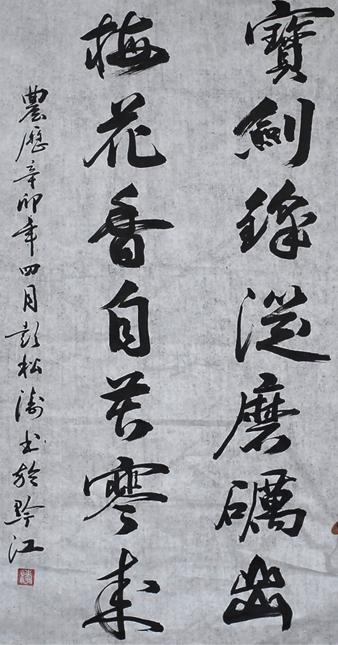 寶劍鋒從磨礪出
梅花香自苦寒來
農曆辛卯年四月彭松濤書於黔江